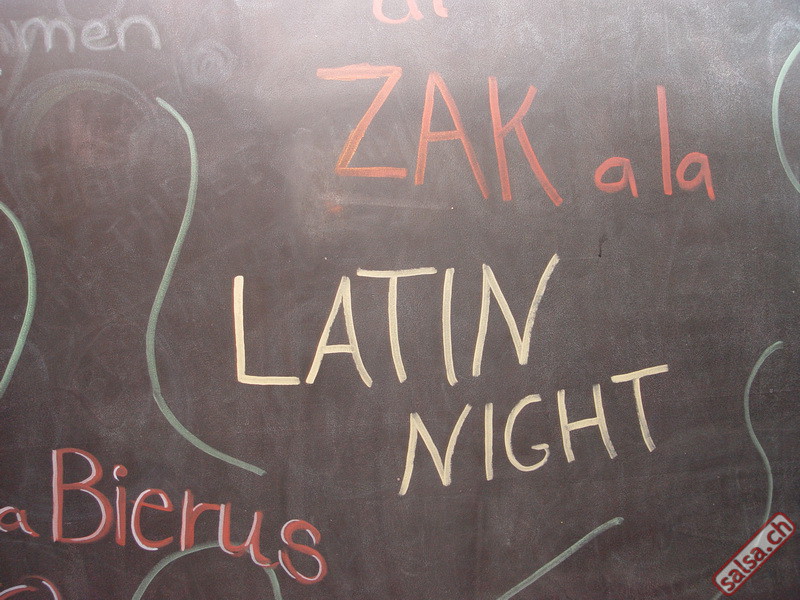 ZAK a la
LATIN
NIGHT
a Bierus
salsa.ch